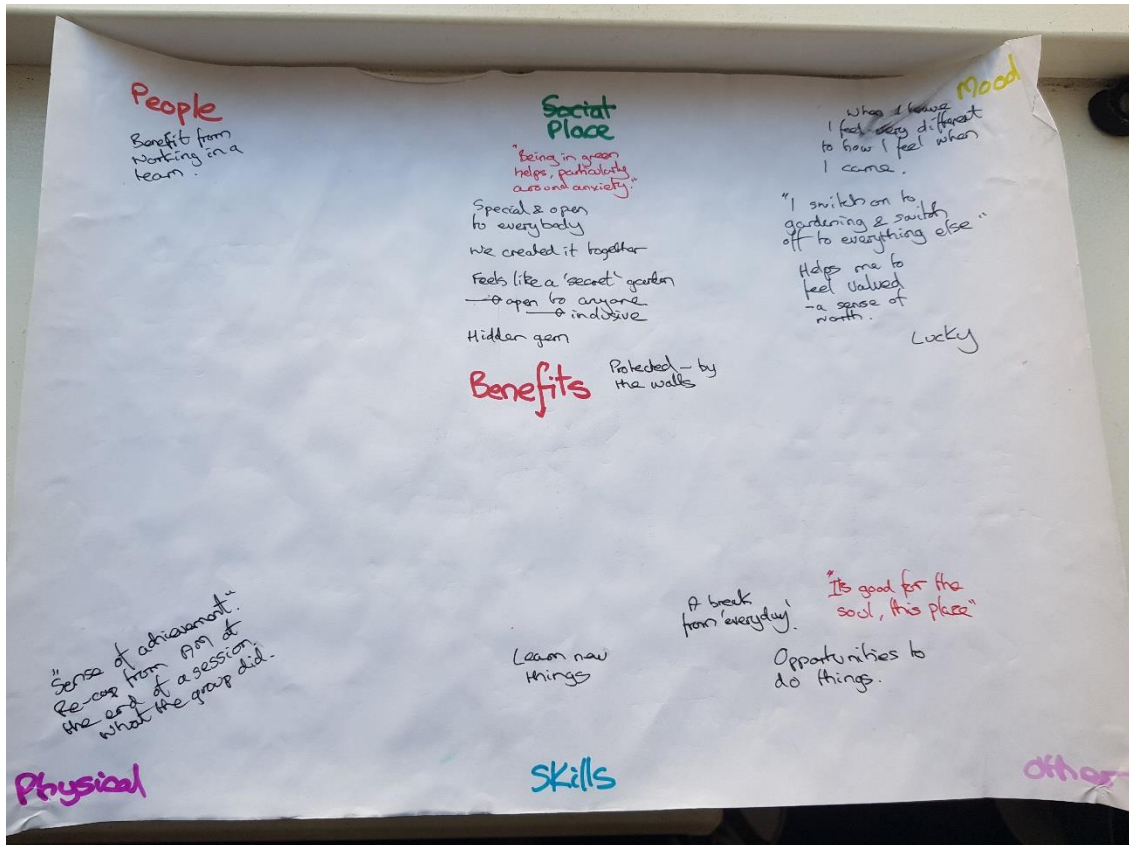 People
Benefit from
working in a
team.
Social
Place
"Being in green
helps, particularly
around anxiety."
Special & open
to everybody
We created it together
Feels like a 'secret' garden
→ open to anyone
→ inclusive
Hidden gem
Mood
When I leave
I feel very different
to how I feel when
I came.
"I switch on to
gardening & switch
off to everything else"
Helps me to
feel valued
- a sense of
worth.
Lucky
Benefits
Protected - by
the walls
"Sense of achievement".
Re-cap from AM at
the end of a session.
what the group did.
Physical
Learn new
things
Skills
A break
from 'everyday'.
"Its good for the
soul, this place"
Opportunities to
do things.
other